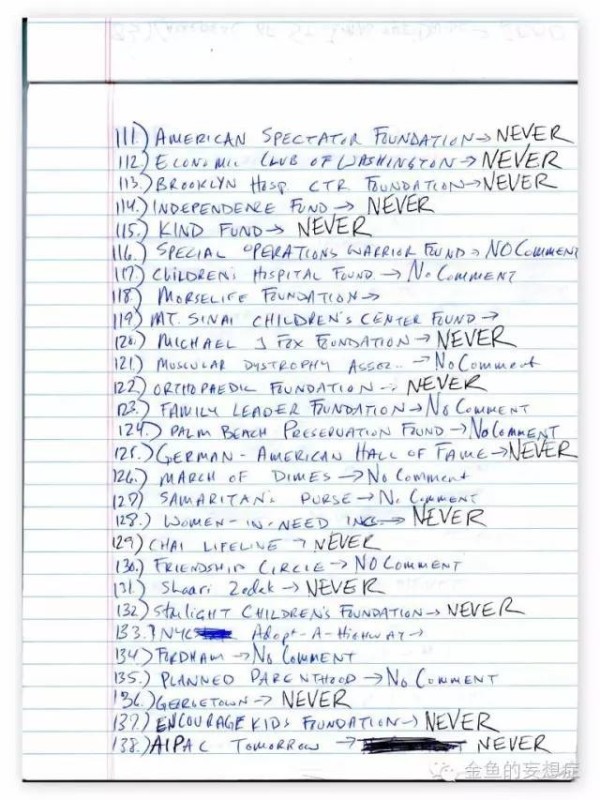 111.) AMERICAN SPECTATOR FOUNDATION → NEVER
112.) ECONOMIC CLUB OF WASHINGTON → NEVER
113.) BROOKLYN HOSP CTR FOUNDATION → NEVER
114.) INDEPENDENCE FUND → NEVER
115.) KIND FUND → NEVER
116.) SPECIAL OPERATIONS WARRIOR FUND → NO COMMENT
117.) CHILDREN'S HOSPITAL FOUND → No COMMENT
118.) MORSELIFE FOUNDATION →
119.) MT. SINAI CHILDREN'S CENTER FUND →
120.) MICHAEL J FOX FOUNDATION → NEVER
121.) MUSCULAR DYSTROPHY ASSOC.. → No Comment
122.) ORTHOPAEDIC FOUNDATION → NEVER
123.) FAMILY LEADER FOUNDATION → No COMMENT
124.) PALM BEACH PRESERVATION FOUND → No COMMENT
125.) GERMAN-AMERICAN HALL OF FAME → NEVER
126.) MARCH OF DIMES → No COMMENT
127.) SAMARITAN'S PURSE → No COMMENT
128.) WOMEN-IN-NEED INC → NEVER
129.) CHAI LIFELINE → NEVER
130.) FRIENDSHIP CIRCLE → NO COMMENT
131.) Shaari Zedek → NEVER
132.) STARLIGHT CHILDREN'S FOUNDATION → NEVER
133.) NYC Adopt-A-HIGHWAY →
134.) FORDHAM → No COMMENT
135.) PLANNED PARENTHOOD → No COMMENT
136.) GEORGETOWN → NEVER
137.) ENCOURAGE KIDS FOUNDATION → NEVER
138.) AIPAC TOMORROW → NEVER
金鱼的妄想症